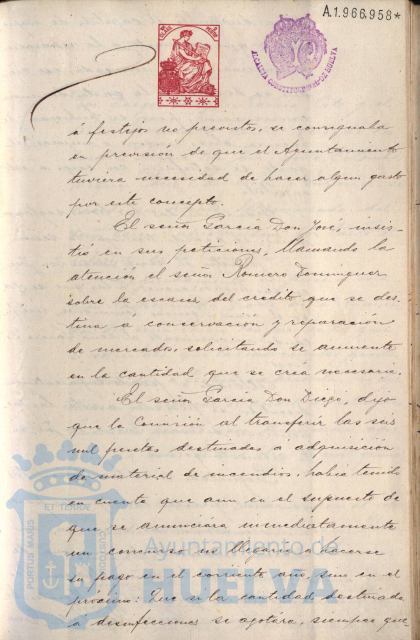 A.1.966,958*
ALCALDIA CONSTITUCIONAL DE HUELVA
á festejos no previstos, se consignaba
en prevision de que el Ayuntamiento
tuviera necesidad de hacer algun gasto
por este concepto.
El señor Garcia Don José, insis-
tió en sus peticiones, llamando la
atención el señor Romero Dominguez
sobre la escasez del crédito que se des-
tina á conservación y reparación
de mercados, solicitando se aumente
en la cantidad que se crea necesaria.
El señor Garcia Don Diego, dijo
que la Comisión al transferir las seis
mil pesetas destinadas á adquisición
de material de incendios, habia tenido
en cuenta que aun en el supuesto de
que se anunciara inmediatamente
un concurso no llegaria á hacerse
su pago en el corriente año, sino en el
próximo: Que si la cantidad destinada
a desinfecciones se agotára, siempre que
PORTUS MARIS ET TERRAE CUSTODIA
Ayuntamiento de
HUELVA